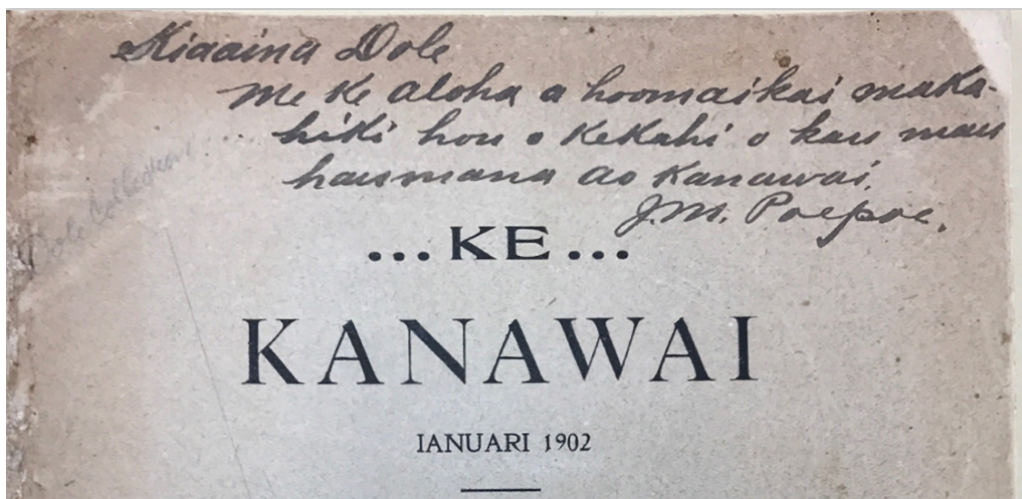 Kiaaina Dole
me ke aloha a hoomaikai maka-
hiki hou o kekahi o kau mau
haumana ao kanawai.
J. M. Poepoe.
Dole Collection
...KE...
KANAWAI
IANUARI 1902